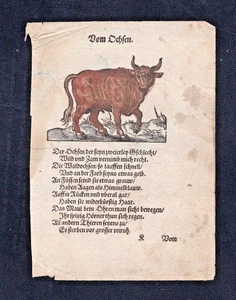 Vom Ochsen.
Der Ochsen der seyn zweierley Gschlecht/
Wild vnd Zam vernimb mich recht.
Die Waldochsen so lauffen schnell/
Vnd an der Farb seyn etwas gelb.
An Füssen seind sie etwas graw/
Haben Augen als Himmelblaw.
Auff m Rücken vnd vberal gar/
Haben sie widerbürstig Haar.
Das Maul dein Ohren man sicht bewegen/
Ihr spitzig Hörner thun sich regen.
All andern Thieren
Er sterben vor grosser vnruh.
K Vom